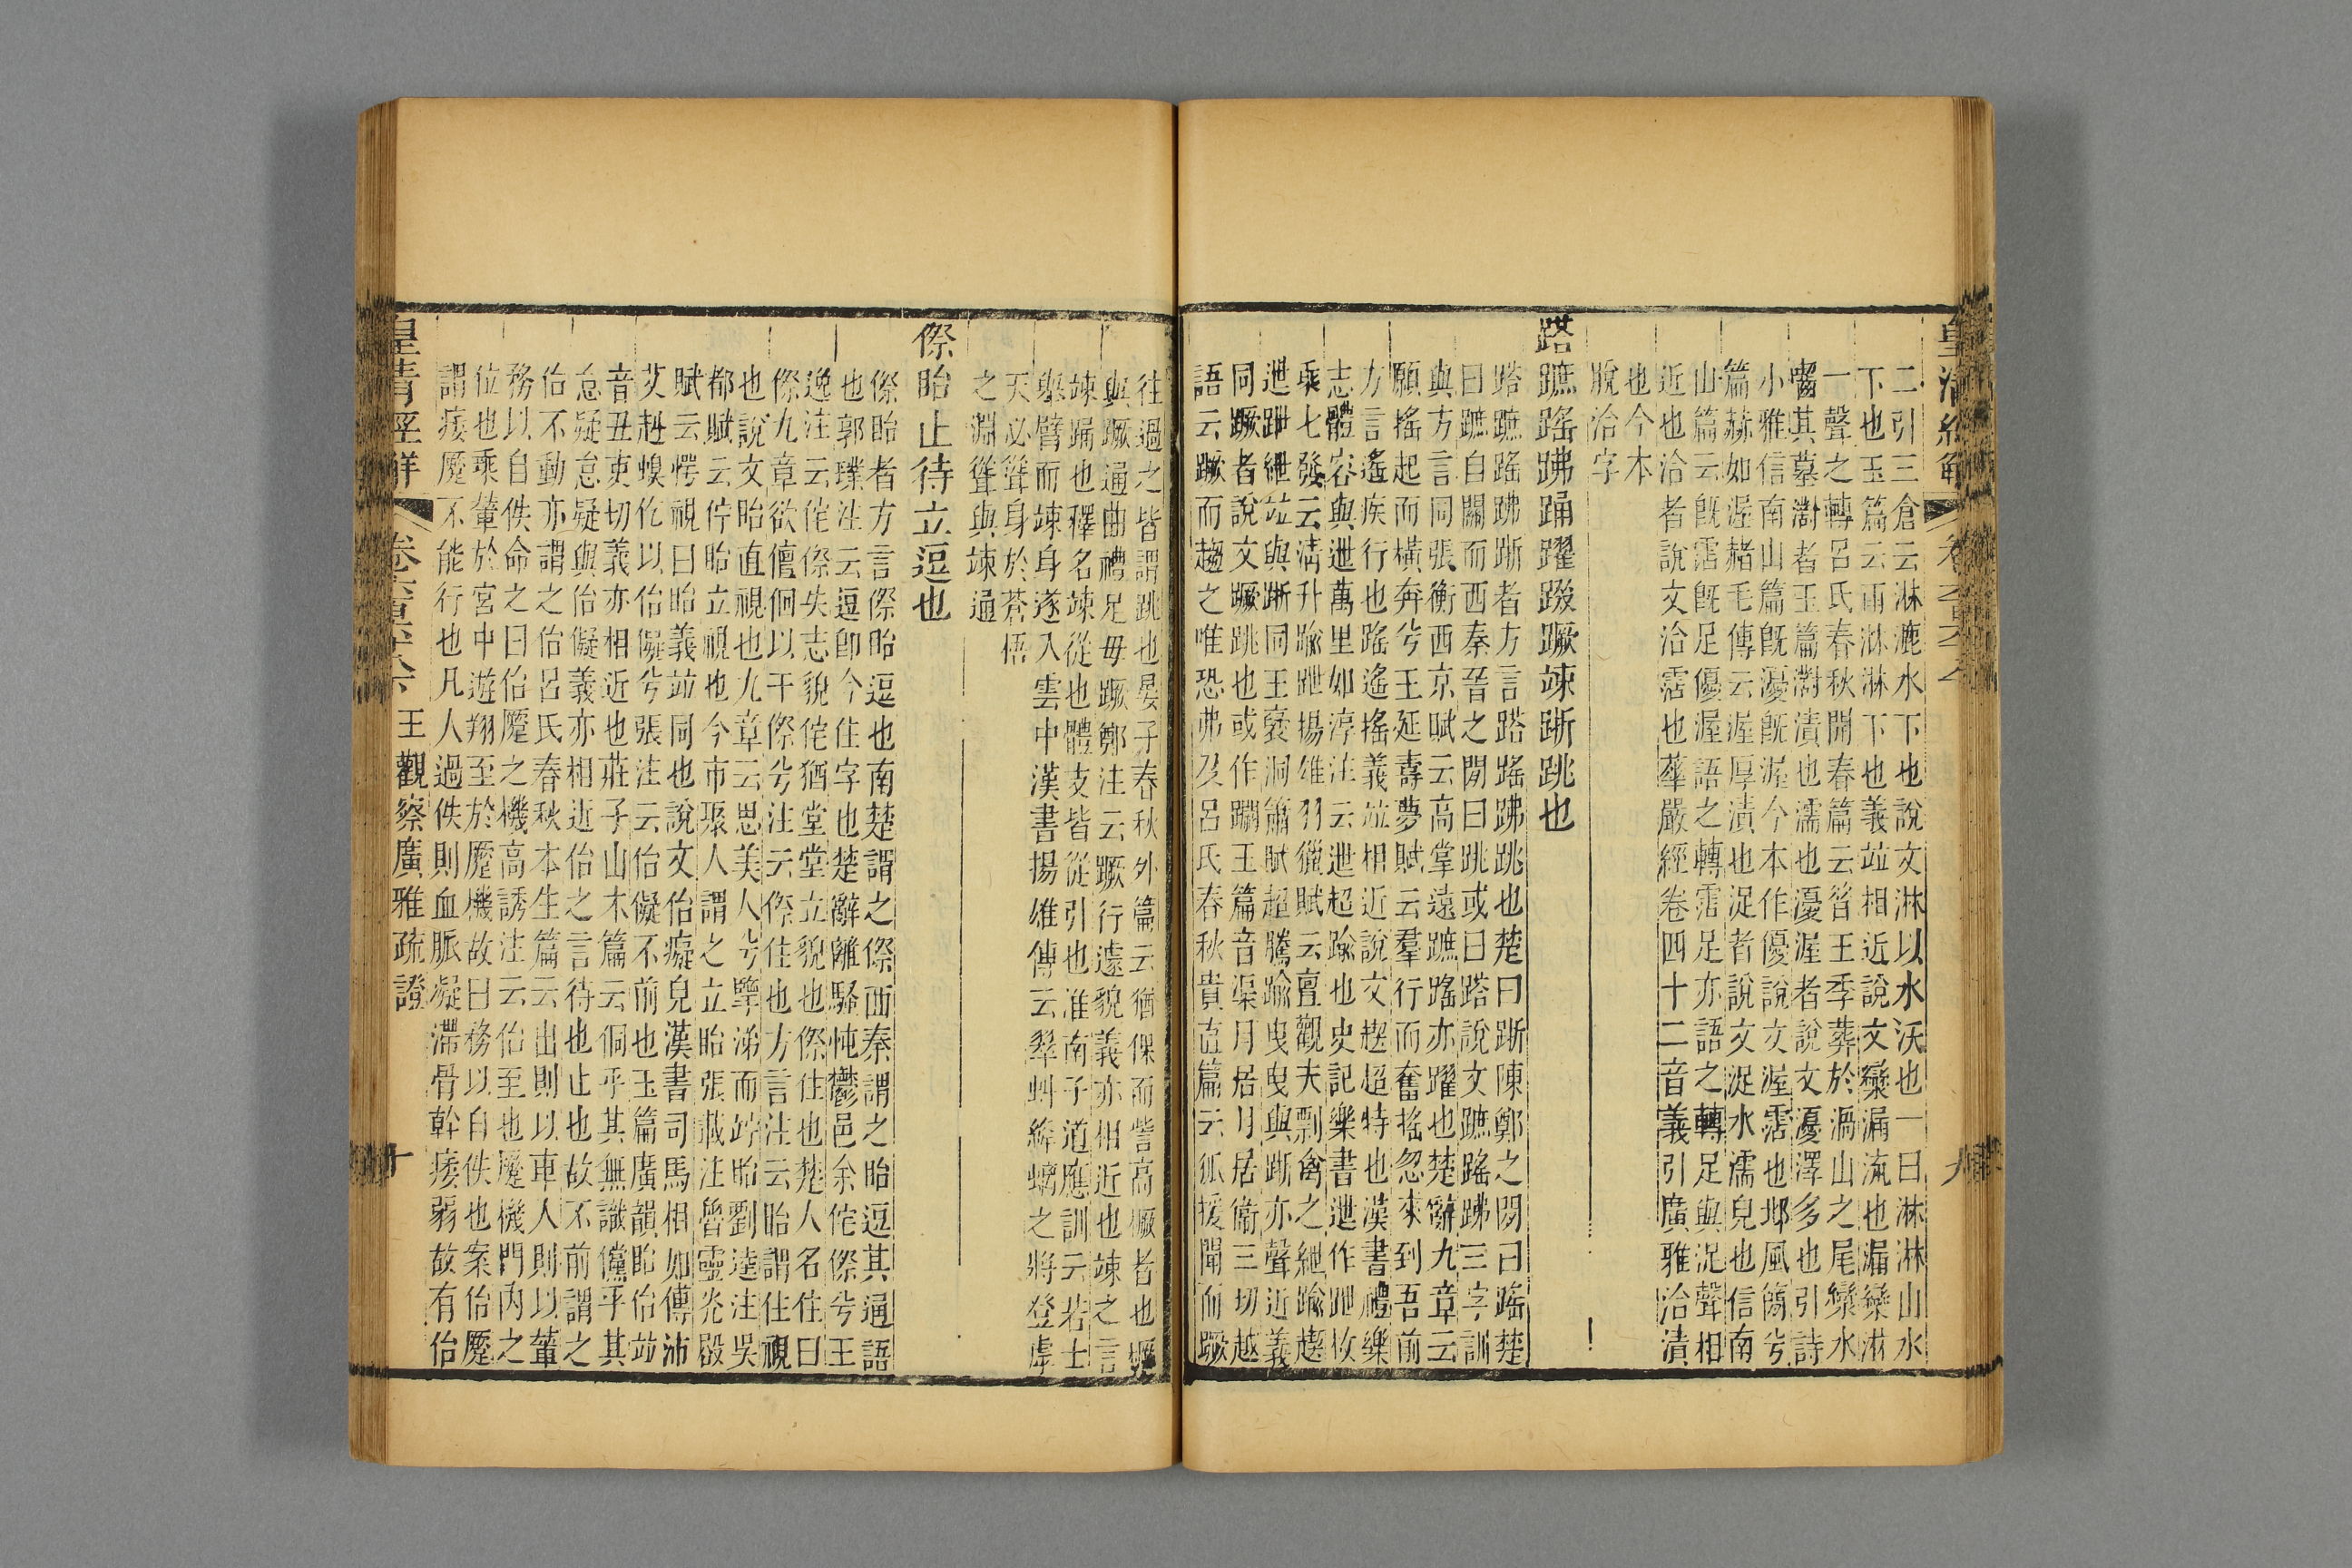 二引三倉云淋漉水下也說文淋以水沃也一曰淋淋山水
下也玉篇云雨淋淋下也義竝相近說文欒漏流也漏欒淋
一聲之轉呂氏春秋開春篇云昝王季葬於渦山之尾欒水
齧其墓澍者玉篇澍漬也濡也瀀渥者說文瀀澤多也引詩
小雅信南山篇旣瀀旣渥今本作優說文渥霑也邶風簡兮
篇赫如渥赭毛傳云渥厚漬也浞者說文浞水濡皃也信南
山篇云旣霑旣足優渥語之轉霑足亦語之轉足與浞聲相
近也洽者說文洽霑也華嚴經卷四十二音義引廣雅洽漬
也今本
脫洽字
踣蹠踰跰踊躍蹳蹶竦踅跳也
與方言同張衡西京賦云高掌遠蹠踰亦躍也楚辭九章云
願搖起而橫奔兮王延壽夢賦云羣行而奮搖忽來到吾前
方言遙疾行也踰遙搖義竝相近說文趮超特也漢書禮樂
志體容與迣萬里如淳注云迣超踰也史記樂書迣作跇枚
乘七發云淸升踰跇揚雄羽獵賦云亶觀夫剽禽之紲踰趮
迣跇紲竝與踅同王褒洞簫賦超騰踰曳曳與踅亦聲近義
同蹶者說文蹶跳也或作躝玉篇音渠月居月居衞三切越
語云蹶而趨之唯恐弗及呂氏春秋貴直篇云狐援聞而蹶
往過之皆謂跳也晏子春秋外篇云猶倮而訾高橛者也橛
與蹶通曲禮足毋蹶鄭注云蹶行遽貌義亦相近也竦之言
竦踊也釋名竦從也體支皆從引也淮南子道應訓云若士
舉臂而竦身遂入雲中漢書揚雄傳云翠虯絳螭之將登虖
天必聳身於蒼梧
之淵聳與竦通
傺眙止待立逗也
傺眙者方言傺眙逗也南楚謂之傺西秦謂之眙逗其通語
也郭璞注云逗卽今住字也楚辭離騷忳鬱邑余侘傺兮王
逸注云侘傺失志貌侘猶堂堂立貌也傺住也楚人名住曰
傺九章欲儃佪以干傺兮注云傺住也方言注云眙謂住視
也說文眙直視也九章云思美人兮擥涕而竚眙劉逵注吳
都賦云佇眙立視也今市聚人謂之立眙張載注魯靈光殿
賦云愕視曰眙義竝同也說文佁癡皃漢書司馬相如傳沛
艾赳螑仡以佁儗兮張注云佁儗不前也玉篇廣韻眙佁竝
音丑吏切義亦相近也莊子山木篇云侗乎其無識儻乎其
怠疑怠疑與佁儗義亦相近佁之言待也止也故不前謂之
佁不動亦謂之佁呂氏春秋本生篇云出則以車人則以輦
務以自佚命之曰佁蹷之機高誘注云佁至也蹷機門內之
位也乘輦於宮中遊翔至於蹷機故曰務以自佚也案佁蹷
謂痿蹷不能行也凡人過佚則血脈凝滯骨幹痿弱故有佁
王觀察廣雅疏證